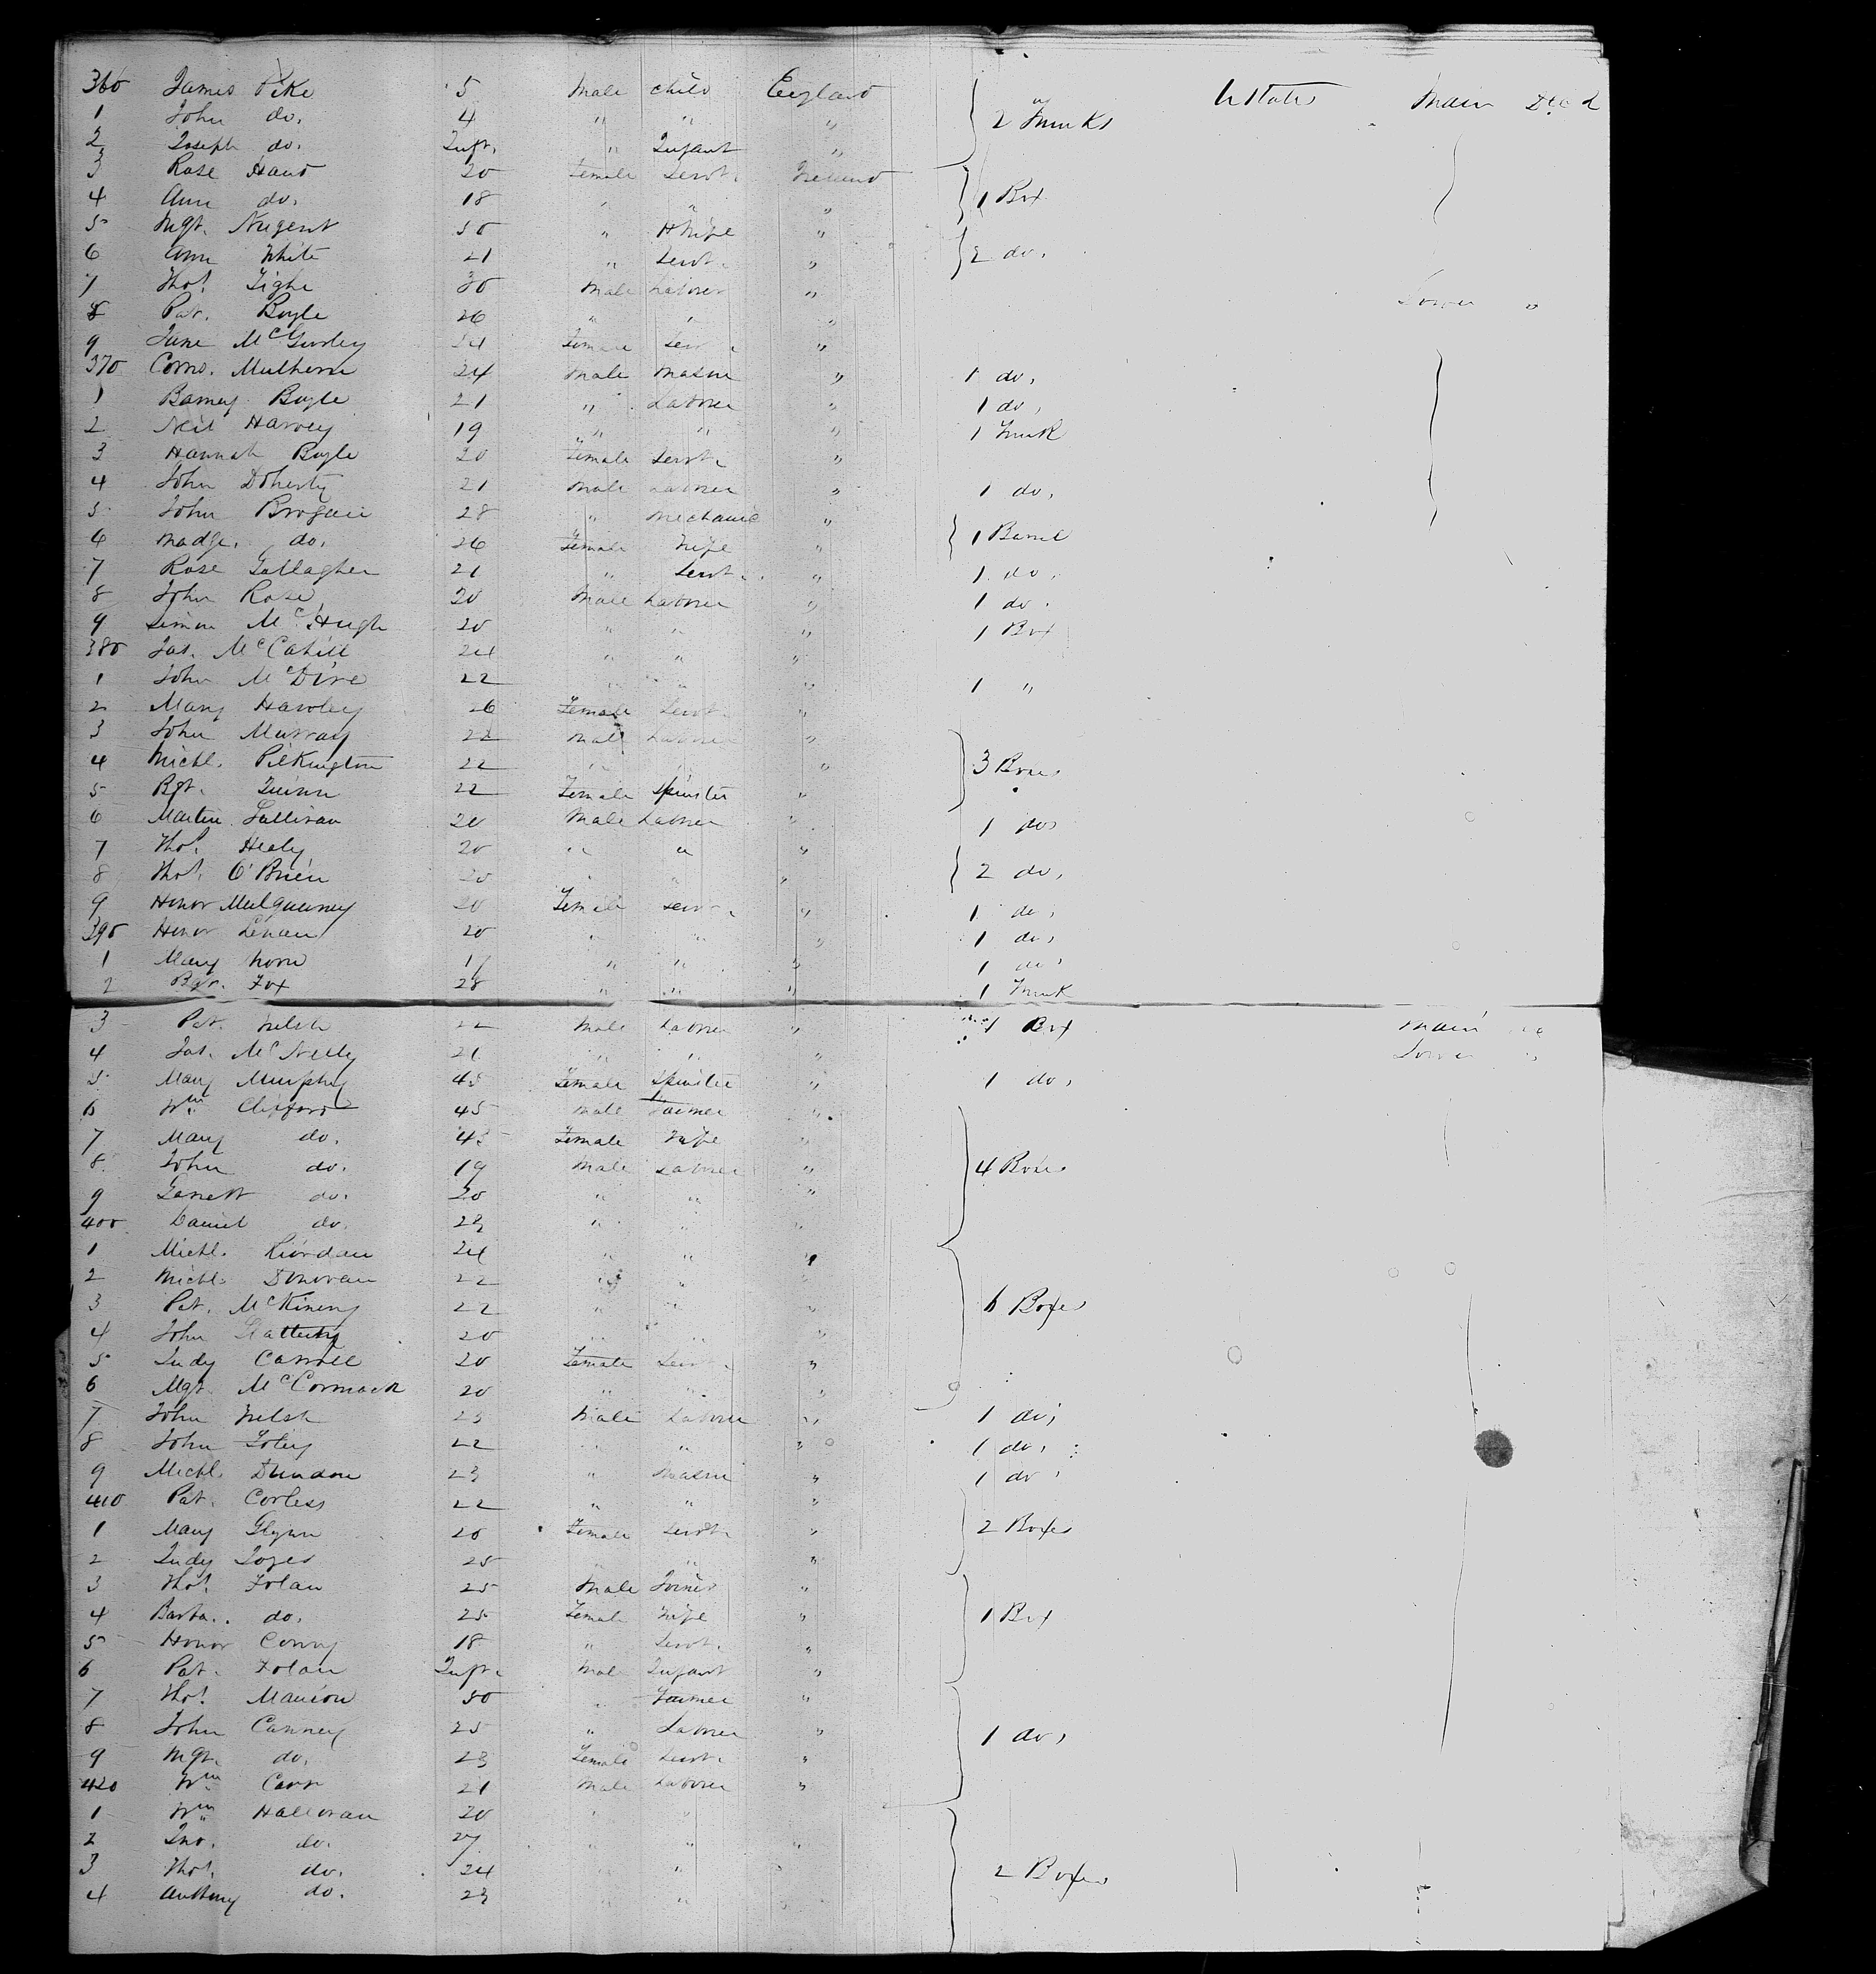 360 James Pike 5 Male Child England 2 Trunks U States Main Deck
1 John do. 4 " " "
2 Joseph do. Inft. " Infant "
3 Rose Hand 20 Female Servt. Ireland
4 Ann do. 18 " " " 1 Box
5 Mgt. Nugent 50 " HWife "
6 Ann White 21 " Servt. " 2 do.
7 Thos. Tighe 30 Male Laborer " Lower "
8 Pat. Boyle 26 " " "
9 Jane McGurley 24 Female Servt. "
370 Corns. Mulhern 24 Male Mason " 1 do.
1 Barney Boyle 21 " Laborer " 1 do.
2 Neil Harvey 19 " " " 1 Trunk
3 Hannah Boyle 20 Female Servt. "
4 John Doherty 21 Male Laborer " 1 do.
5 John Brogan 28 " Mechanic "
6 Madge. do. 26 Female Wife " 1 Barrel
7 Rose Gallagher 21 " Servt. " 1 do.
8 John Rose 20 Male Laborer " 1 do.
9 Simon McHugh 20 " " " 1 Box
380 Jas. McCahill 24 " " "
1 John McDire 22 " " " 1 "
2 Mary Hawley 26 Female Servt. "
3 John Murray 22 Male Laborer "
4 Michl. Pilkington 22 " " " 3 Boxes
5 Bgt. Quinn 22 Female Spinster "
6 Martin Sullivan 20 Male Laborer " 1 do.
7 Thos. Healy 20 " " "
8 Thos. O'Brien 20 " " " 2 do.
9 Honor Mulqueeney 20 Female Servt. " 1 do.
390 Honor Lenan 20 " " " 1 do.
1 Mary 17 " " " 1 do.
2 Bgt. Fox 28 " " " 1 Trunk
3 Pat. Welsh 22 Male Laborer " 1 Box Main
4 Jas. McNelly 21 " " " Lower "
5 Mary Murphy 45 Female Spinster " 1 do.
6 Wm. Clifford 45 Male Farmer "
7 Mary do. 45 Female Wife "
8 John do. 19 Male Laborer " 4 Boxes
9 Garrett do. 20 " " "
400 Daniel do. 23 " " "
1 Michl. Riordan 24 " " "
2 Michl. Donovan 22 " " "
3 Pat. McKineny 22 " " " 6 Boxes
4 John Slattery 20 " " "
5 Judy Carroll 20 Female Servt. "
6 Mgt. McCormack 20 " " "
7 John Welsh 23 Male Laborer " 1 do.
8 John Foley 22 " " " 1 do.
9 Michl. Dundon 23 " Mason " 1 do.
410 Pat. Corless 22 " " "
1 Mary Glynn 20 Female Servt. " 2 Boxes
2 Judy Joyes 25 " " "
3 Thos. Folan 25 Male Joiner "
4 Barba. do. 25 Female Wife " 1 Box
5 Honor Conry 18 " Servt. "
6 Pat. Folan Inft. Male Infant "
7 Thos. Manion 50 " Farmer "
8 John Canney 25 " Laborer " 1 do.
9 Mgt. do. 23 Female Servt. "
420 Wm. Carr 21 Male Laborer "
1 Wm. Halloran 20 " "
2 Jno. do. 27 " " "
3 Thos. do. 24 " " 2 Boxes
4 Anthony do. 23 " "